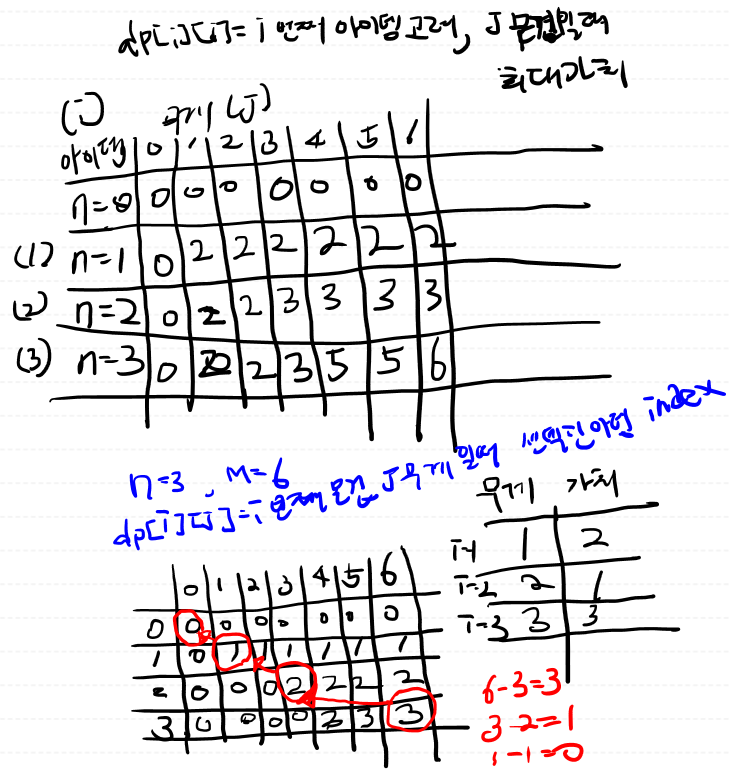 dp[i][j] = i 번째 아이템 고려, J 무게일때
최대가치
(i) 무게 (J)
아이템 0 1 2 3 4 5 6
n=0 0 0 0 0 0 0 0
(1) n=1 0 2 2 2 2 2 2
(2) n=2 0 2 2 3 3 3 3
(3) n=3 0 2 2 3 5 5 6
n=3, M=6
dp[i][j]=i 번째 물건, J무게 일때 선택된아템 index
무게 가치
i=1 1 2
i=2 2 1
i=3 3 3
0 1 2 3 4 5 6
0 0 0 0 0 0 0 0
1 0 1 1 1 1 1 1
2 0 0 0 2 2 2 2
3 0 0 0 0 3 3 3
6-3=3
3-2=1
1-1=0